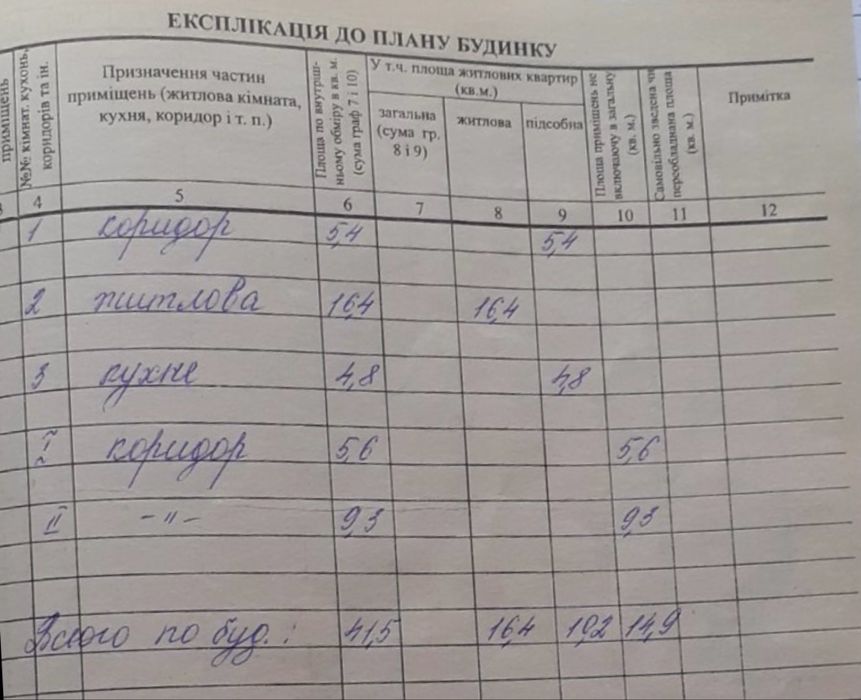 ЕКСПЛІКАЦІЯ ДО ПЛАНУ БУДИНКУ
приміщень
№№ кімнат, кухонь, коридорів та ін.
Призначення частин
приміщень (житлова кімната,
кухня, коридор і т. п.)
Площа по внутріш-
ньому обміру в кв. м.
(сума граф 7 і 10)
У т.ч. площа житлових квартир
(кв.м.)
загальна
(сума гр.
8 і 9)
житлова
підсобна
Площа приміщень не
включаючу в загальну
(кв. м.)
Самовільно зведена чи
переобладнана площа
(кв. м.)
Примітка
3 4 5 6 7 8 9 10 11 12
1 коридор 5,4 5,4
2 житлова 16,4 16,4
3 кухне 4,8 4,8
I коридор 5,6 5,6
II –"– 9,3 9,3
Всього по буд.: 41,5 16,4 10,2 14,9